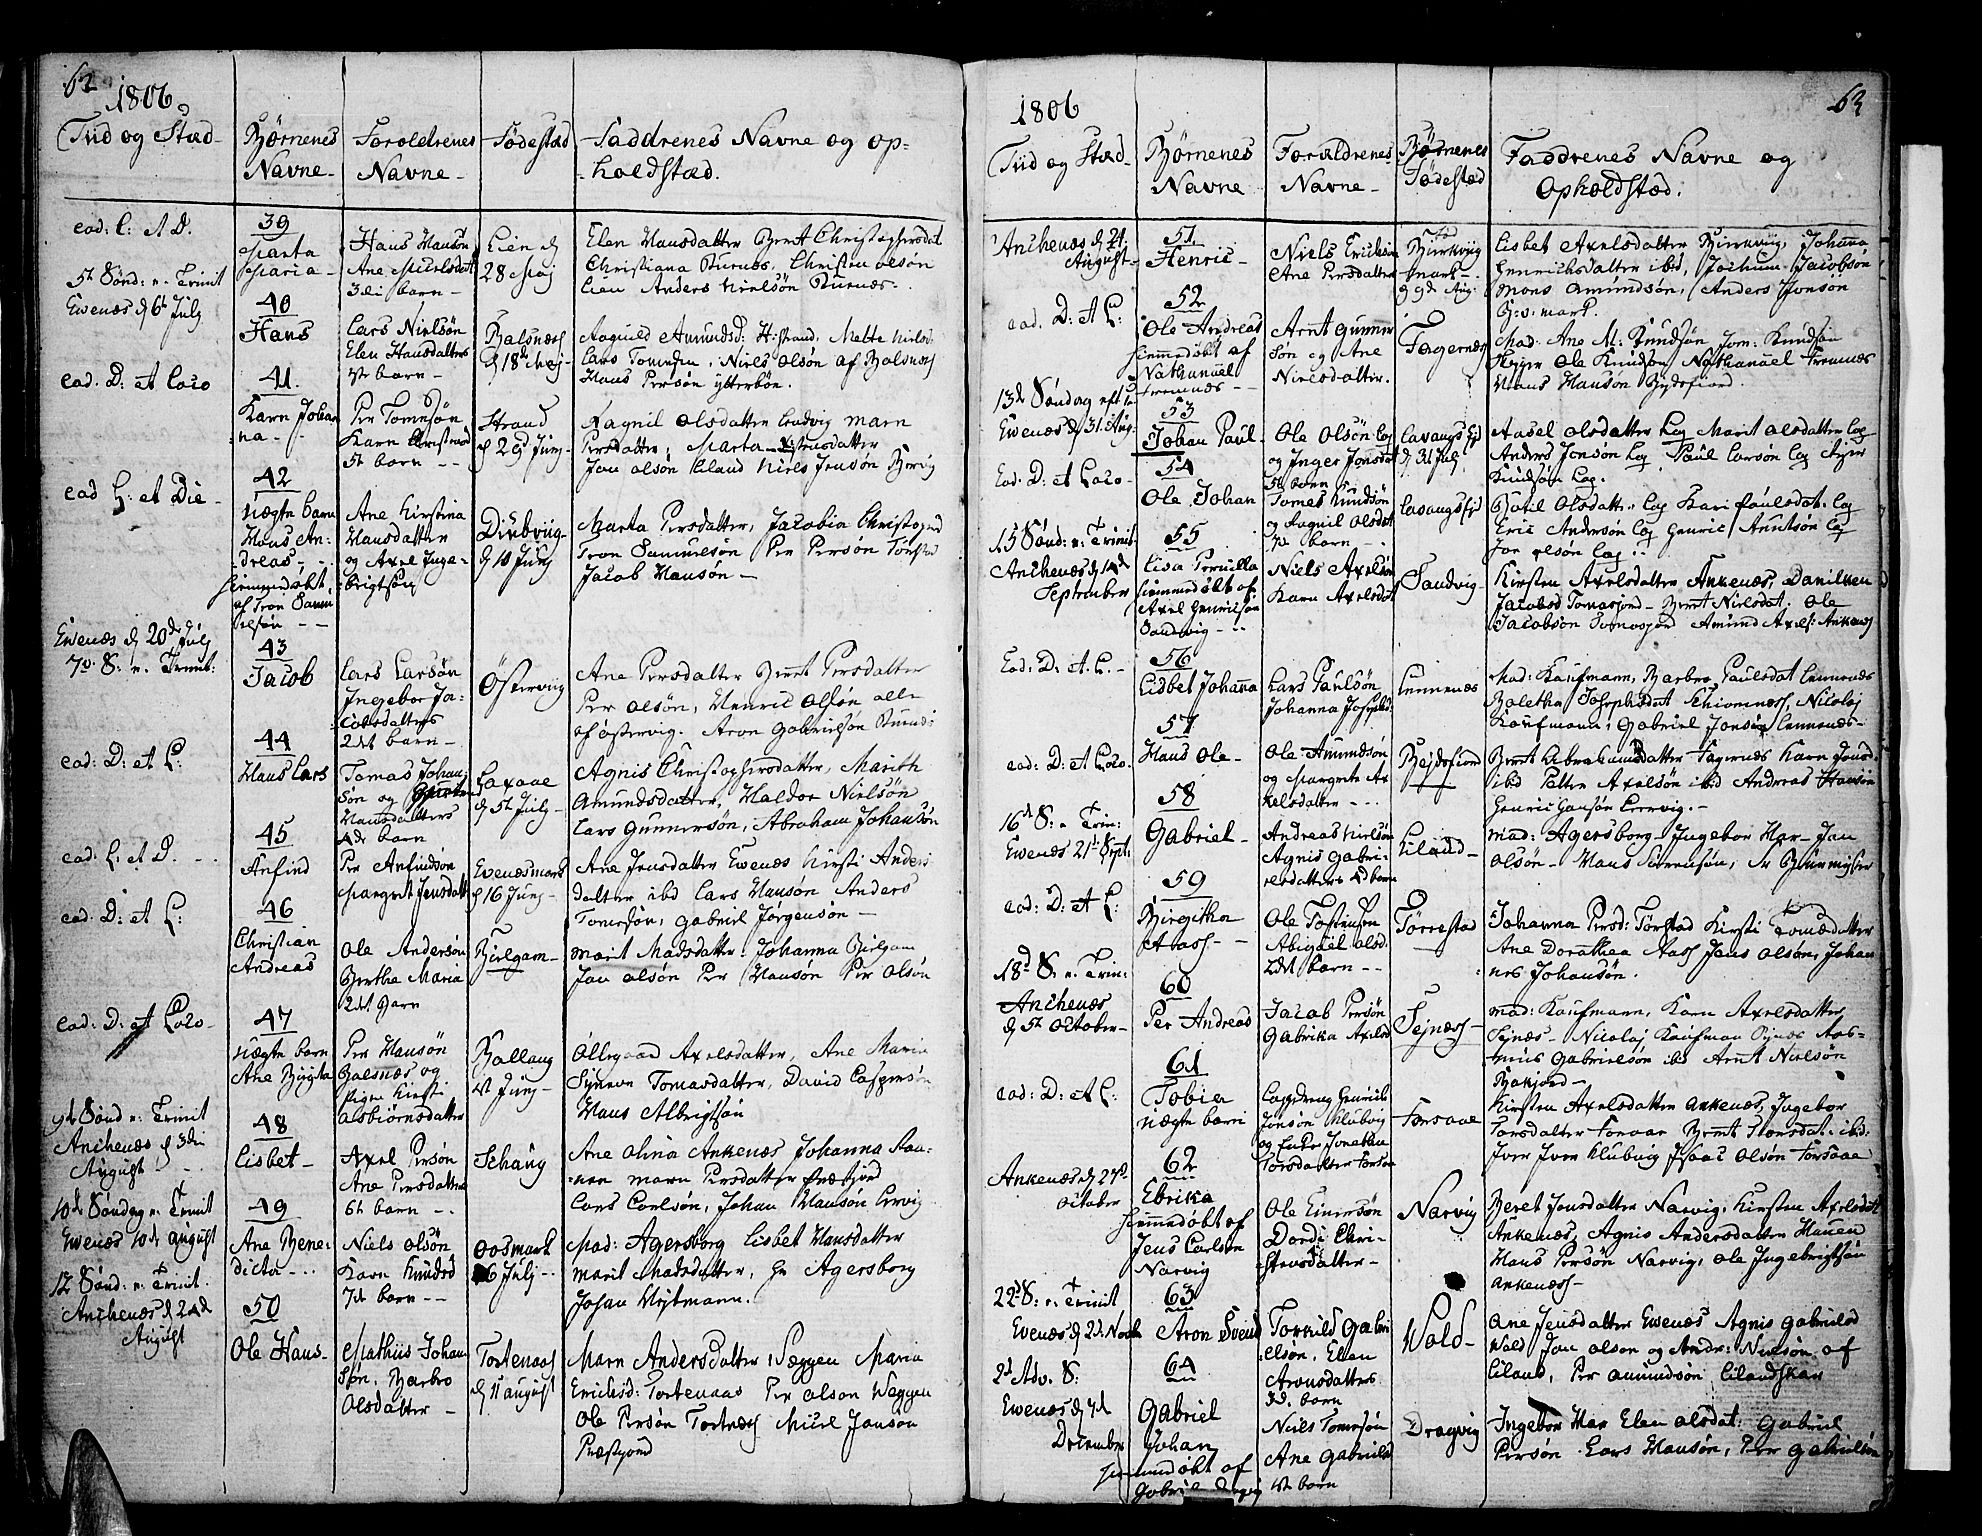 62
1806
Tiid og Stæd
Børnenes Navne
Foroldrenes Navne
Fødestæd
Faddrenes Navne og op=
holdstæd.
ead: L: et D.
39
Marta
Maria
Hans Hansøn
Ane Nielsdat
3die barn
Lien d
28 Maj
Elen Hansdatter Beret Christophersdat
Christiana Burnæs. Christen olsøn
Lien Anders Nielsøn Burnæs.
5te Sønd: p. Trinit
Ewenæs d 6te July
40
Hans
Lars Nielsøn
Elen Hansdatters
barn
Balsnæs
d 18de Maj
Amundsd: H:strand. Malte Niels
Lars . Niels Olsøn af Balsnæs
Hans Persøn ytterbøn.
ead. D: et Loco
41.
Karn Johan
na
Per Tomesøn
Karn
5te barn
Strand
d 29d Junj
Ragnil Olsdatter Ludvig marn
Persdatter; Marta Istensdatter
Jan olsøn Niels Jensøn
ead L: et Die
42
Uægte barn
Hans An=
dreas
hiemmedøbt
af Tron Samu
elsøn
Ane Kirstina
Hansdatter
og Axel Inge=
brigtsøn
d 10 Junj
Marta Persdatter, Jacobia
Tron Samuelsøn Per Persøn
Jacob Hansøn
Ewenæs d 20de July
7de S: p. Trinit:
43
Jacob
Lars Larsøn
Ingebor Ja=
cobsdatters
2det barn
Østerviig
Ane Persdatter Beret Persdatter
Per olsøn, Henric olsøn alle
af østervig. Aron Gabrielsøn Burnæs
ead: D: et L:
44
Hans Lars
Tomas Johan
søn og
Hansdatters
4de barn
Laxaae
d 5te July
Agnis Christophersdatter, Marith
Amundsdatter, Haldor Nielsøn
Lars Gunnersøn, Abraham Johansøn
ead: L: et D.
45
Anfind
Per Anfindsøn
Margret Jensdatt
Ewenæsmark
d 16 Junj
Ane Jensdatter Ewenæs Kirsti Anders
datter ibd Lars Hansøn Anders
Tomesøn, Gabriel Jørgensøn
ead. D: et L:
46
Christian
Andreas
Ole Andersøn
Bertha Maria
2det Barn
Bielgam
marit Madsdatter. Johanna Bielgam
Jan olsøn Per Hansøn Per olsøn
ead: D: et Loco
47
Uægte barn
Ane Bigta
Per Hansøn
Balsnæs og
Pigen Kirsti
Asbiørnsdatter
Ballang
Junj
Ollegaad Axelsdatter, Ane Maria
Synneve Tomasdatter, David Caspersøn
Hans Albrigtsøn
9de Sønd p. Trinit
Anchenæs d 3die
August
48
Lisbet
Axel Persøn
Ane Persdatter
6te barn
Schaug
Ane Olina Ankenæs Johanna
marn Persdatter præstjord
Lars Carlsøn, Johan Hansøn Lervig
10de Søndag p. Trinit
Ewenæs 10de august
49
Ane Bene=
dicta
Niels Olsøn
Karn Knudsd
7de barn
Oosmark
6 July
Mad: Agersborg Lisbet Hansdatter
marit Madsdatter, Hr Agersborg
Johan Heitmann.
12te Sønd: p. Trinit.
Anchenæs d 24de
August
50
Ole Hans
Mathiis Johan
søn, Barbro
Olsdatter
Tortenaas
d 11 august
Marn Andersdatter, Seggen Maria
Ericksd: Tortenaas Per olson Weggen
Ole Persøn Tortnæs Jonsøn
Præstjord
63
1806
Tiid og Stæd
Børnenes Navne
Forældrenes Navne
Børnenes Fødestæd
Faddrenes Navne og
Opholdstæd.
Anchenæs d 24
August
51
Henric
Niels Ericksøn
Ane Persdatter
Birkviig
mark
d 9de Aug.
Lisbet Axelsdatter Birkviig, Johana
Henricksdatter ibid, Jochum Jacobsøn
Mons Amundsøn, Anders Jonsøn
B: v: mark.
ead. D: et L:
52
Ole Andreas
hiemmedøbt af
Nathanael
Arnt Gunner
søn og Ane
Nielsdatter.
Fagernæs
Mad. Ane M: Knudsøn Jom: Knudsøn
Ole Knudsøn Nathanael
Hans Hansøn Bejsfiord.
13de Søndag eft T
Ewenæs d 31. Aug.
53
Johan Paul
Ole Olsøn Log
og Inger Jonsdat
5te barn
Lavangs Ejd
d 31 July
Aasel olsdatter Log Marit olsdatter Log
Anders Jonsøn Log Paul Larsøn Log
Knudsøn Log.
Ead. D: et Loco
54
Ole Johan
Tomes Knudsøn
og Ragnil Olsdat
barn
Lavangsejd
Botil Olsdatt. Log Kari Paulsdat. Log
Eric Andersøn Log Henric Arntsøn Log
Jon olsøn Log
15 Sønd: p. Trinit
Anchenæs d 14de
September
55
Lisa Pernilla
hiemmedøbt af
Axel Henricsøn
Sandvig
Niels Axelsøn
Karn Axelsdat
Sandvig
Kirsten Axelsdatter Ankenæs, Daniken
Jacobsd Tomasjord Beret Nielsdat. Ole
Jacobsøn Tomasjord Amund Axels: Ankenæs
Ead: D: et L.
56
Lisbet Johanna
Lars Paulsøn
Johanna Josephsd
Lennenæs
Mad: Kaufmann, Barbro Paulsdat Lennenæs
Boletha Josephsdat Schiomnæs, Nicolaj
Kaufmann, Gabriel Jonsøn Lennenæs
ead: D: et Loco.
57
Hans Ole
Ole Amundsøn
og Margrete Ax
elsdatter
Bejdsfiord
Beret Abrahamsdatter Fagernæs Karn Jonsd.
ibid Petter Axelsøn ibid Andreas Hansøn
Henric Hansøn Lervig.
16de S: p. Trin:
Ewenæs 21de Sept.
58
Gabriel
Andreas Nielsøn
Agnis Gabri=
elsdatters 4d barn
Liland
mad: Agersborg Ingebor Mar Jan
olsøn Hans Sørensøn, Sr Burmejster
ead: D: et L:
59
Birgitha
Aass
Ole Tostensøn
Abigael olsd.
2det barn
Tørrestad
Johanna Persd: Tørstad Kirsti datter
Ane Dorothea Aass Jens olsøn, Johan
nes Johansøn.
18de S: p. Trin:
Anchenæs
d 5te October
60
Per Andreas
Jacob Persøn
Gabrika Axelsd
Sejnæss
mad: Kaufmann, Karn Axelsdatter
Sejnæs Nicolaj Kaufman Sejnes Aas=
mus Gabrielsøn ibd Arnt Nielsøn
ead: D: et L:
61
Tobias
uægte barn
Henrick
Jonsøn Klubvig
og Enke Jonetha
Larsdatter Forsaa
Forsaae
Kirsten Axelsdatter Ankenæs, Ingebor
Larsdatter Forsaa Beret Larsdat. ibid:
Iver Iver Klubvig Isaac Olsøn Forsaae
Ankenæs d 27de
October
62
Ebrika
hiemmedøbt af
Jens Carlsen
Narvig
Ole Einersøn
Dordi Chri=
stensdatter
Narvig
Beret Jonsdatter Narvig, Kirsten Axelsdat
Ankenæs, Agnis Andersdatter Hauen
Hans Persøn Narvig, Ole Ingebrigtsøn
Ankenæss
22de S: p. Trinit
Ewenæs d 2de Novb
63
Aron Svend
Torkild Gabri
elsøn. Elen
Aronsdatters
3d. barn
Wold
Ane Jensdatter Ewenæs Agnis gabrielsd
Wold Jan olsøn og Andr: Nielsøn af
Liland, Per amundsøn Lilandskar
2de Adv. S:
Ewenæs d 7de
December
64
Gabriel
Johan
hiemmedøbt af
Gabriel Dragvig
Niels Tomesøn
Ane Gabrielsd
barn
Dragvig
Ingebor Mar Elen olsdat: Gabriel
Persøn. Lars Hansøn, Per Gabrielsøn